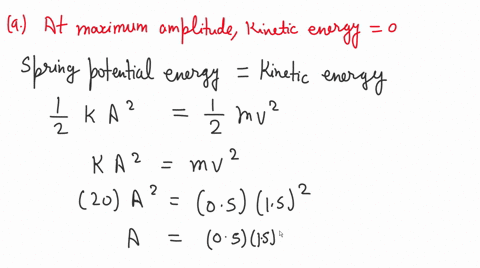 (a.) At maximum amplitude, Kinetic energy = 0
Spring potential energy = Kinetic energy
1/2 K A² = 1/2 mv²
K A² = mv²
(20) A² = (0.5) (1.5)²
A = (0.5)(1.5)